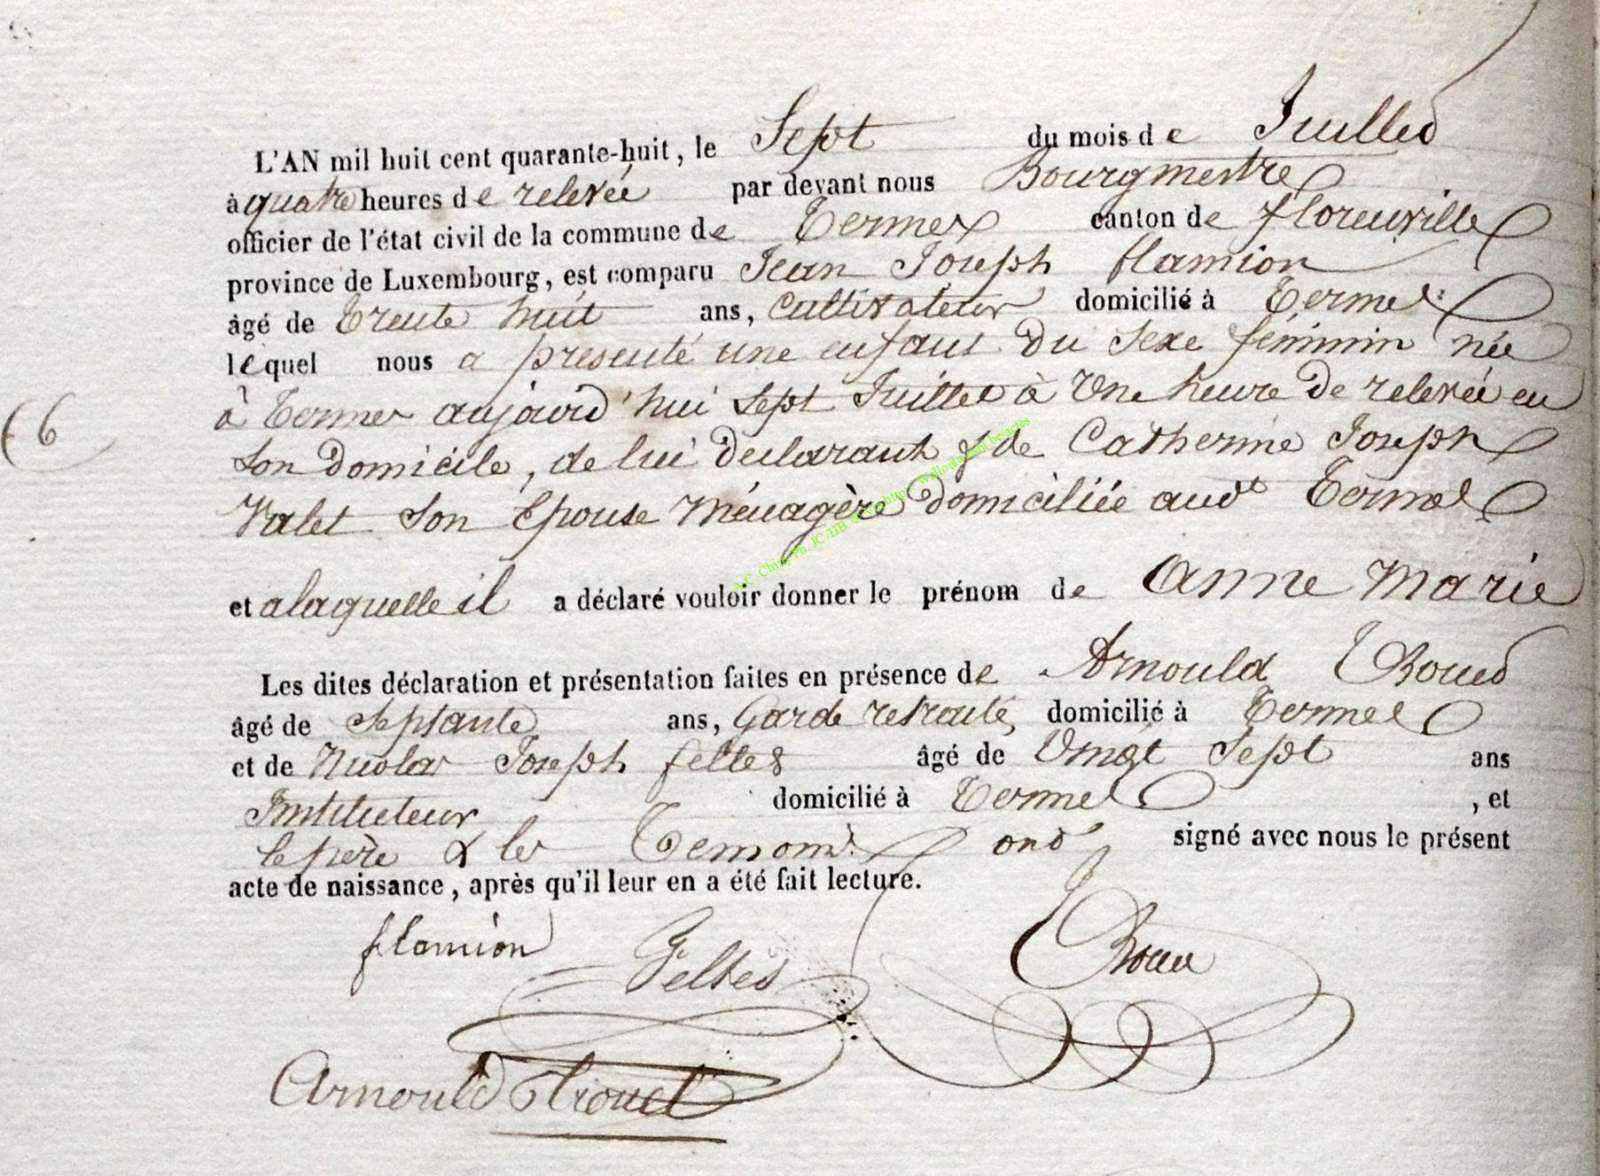 L'AN mil huit cent quarante-huit, le Sept du mois de Juillet
à quatre heures de relevée par devant nous Bourgmestre
officier de l'état civil de la commune de Termes canton de florenville
province de Luxembourg, est comparu Jean Joseph flamion
âgé de Trente huit ans, Cultivateur domicilié à Termes
lequel nous a présenté une enfant du sexe féminin née
à Termes aujourd'hui sept Juillet à Une heure de relevée en
66
son domicile, de lui declarant & de Catherine Joseph
Valet son Epouse Ménagère domiciliée aud Termes
et alaquelle il a déclaré vouloir donner le prénom de Anne Marie
Les dites déclaration et présentation faites en présence de Arnould
âgé de septante ans, Garde retraité, domicilié à Termes
et de Nicolas Joseph feltes âgé de Vingt Sept ans
Instituteur domicilié à Termes, et
le père & les Temoins ont signé avec nous le présent
acte de naissance, après qu'il leur en a été fait lecture.
flamion Feltes
Arnould